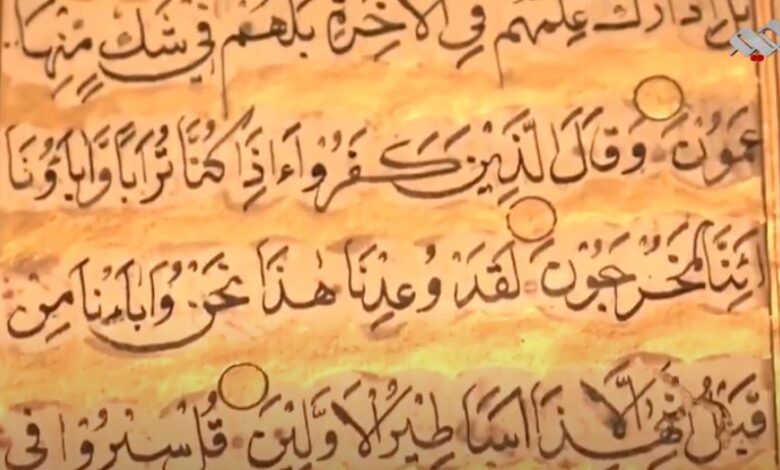 بل ادارك علمهم في الاخرة بل هم في شك منها
عمون وَقَالَ الَّذِيْنَ كَفَرُوْا ءَاِذَا كُنَّا تُرَابًا وَّاٰبَاؤُنَا
اَئِنَّا لَمُخْرَجُوْنَ لَقَدْ وُعِدْنَا هٰذَا نَحْنُ وَاٰبَاءُنَا مِنْ
قَبْلُ اِنْ هٰذَا اِلَّا اَسَاطِيْرُ الْاَوَّلِيْنَ قُلْ سِيْرُوْا فِي